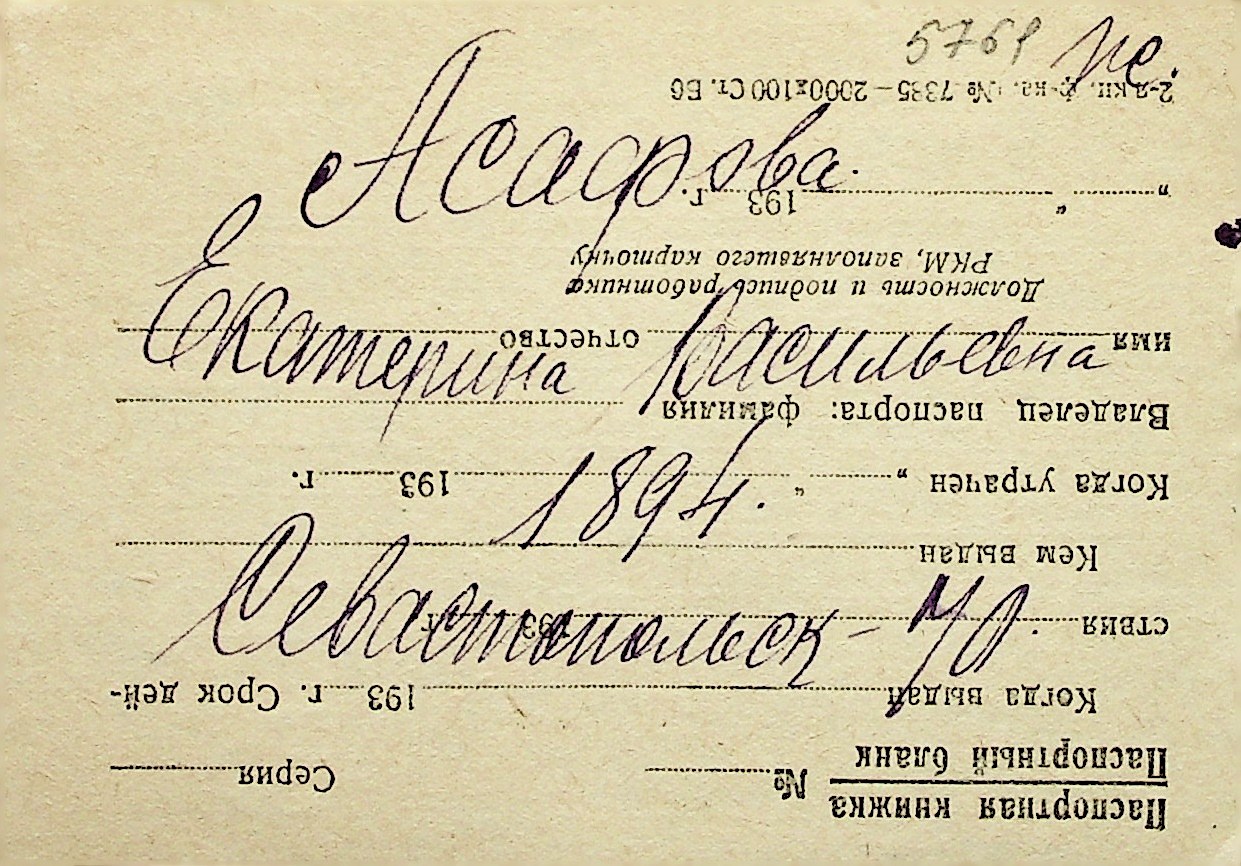 5761 пс.
Асафова.
Екатерина Васильевна
1894.
Севастопольск-
Паспортная книжка
Паспортный бланк
№ Серия
Когда выдан 193 г. Срок дей-
ствия 193 г.
Кем выдан
Когда утрачен „ “ 193 г.
Владелец паспорта: фамилия
имя отчество
Должность и подпись работника
РКМ, заполнявшего карточку
„ “ 193 г.
2-я кн. ф-ка. № 7385—2000х100 Ст. Б6